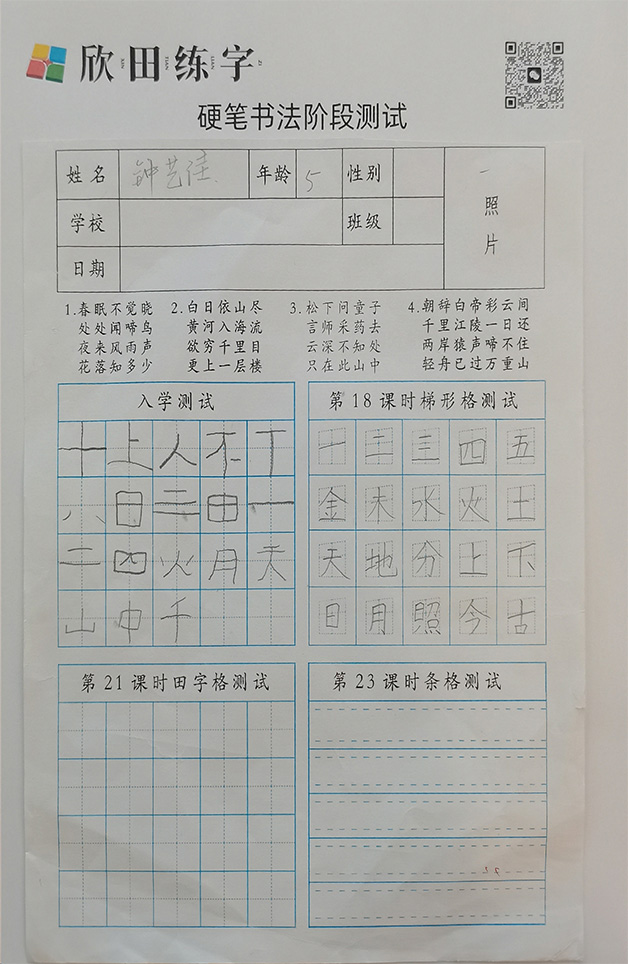 欣田练字
硬笔书法阶段测试
姓名 钟艺佳 年龄 5 性别
照片
学校 班级
日期
1.春眠不觉晓
处处闻啼鸟
夜来风雨声
花落知多少
2.白日依山尽
黄河入海流
欲穷千里目
更上一层楼
3.松下问童子
言师采药去
云深不知处
只在此山中
4.朝辞白帝彩云间
千里江陵一日还
两岸猿声啼不住
轻舟已过万重山
入学测试
十上人不丁
八日二田一
二四火月天
山中千
第18课时梯形格测试
一二三四五
金木水火土
天地分上下
日月照今古
第21课时田字格测试
第23课时条格测试